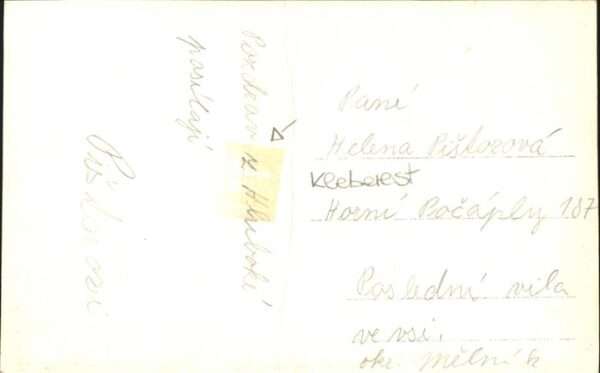 Pozdrav z Hluboké
posílají
Pištorovi
Paní
Helena Pištorová
Kleberest
Horní Počáply 187
Poslední vila
ve vsi.
okr. Mělník